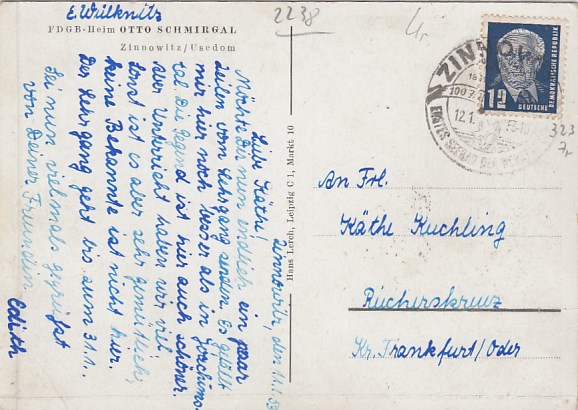 E. Wilknitz
FDGB-Heim OTTO SCHMIRGAL
Zinnowitz/Usedom
2238
Zinnowitz, den 11.1.53
Liebe Käthe!
Möchte Dir nun endlich ein paar
Zeilen vom Lehrgang senden. Es gefällt
mir hier noch besser als in Joachims-
tal. Die Gegend ist hier auch schöner.
Aber Unterricht haben wir viel.
Sonst ist es aber sehr gemütlich,
keine Bekannte ist nicht hier.
Der Lehrgang geht bis zum 31.1.
Sei nun vielmals gegrüßt
von Deiner Freundin
Edith
Hans Lerch, Leipzig C 1, Markt 10
ZINNOWITZ
12.1.
12
DEUTSCHE
DEMOKRATISCHE REPUBLIK
323
An Frl.
Käthe Kuchling
Rücherskreuz
Kr. Frankfurt/Oder